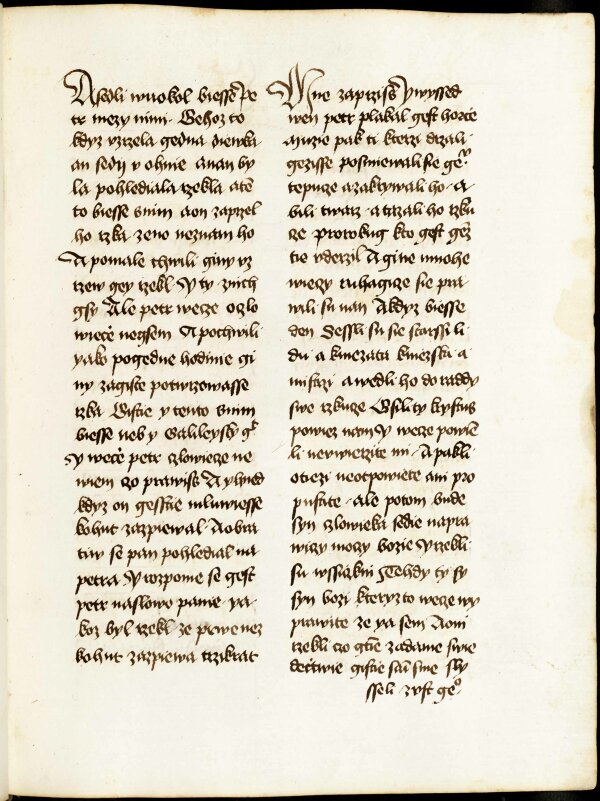 A sedli wuokol biesse Pe
tr mezy nimi. Gehoz to
kdyz vzrzela gedna diewka
an sedij v ohnie anan by
la pohlediala rzekla aten
to biesse snim aon zaprzel
ho rzka zeno neznam ho
A pomale chwili giny vz
rzew gey rzekl y ty znich
gsy Ale petr wecze o czlo
wiecze negsem A po chwili
yako pogedne hodinie gi
ny zagiste potwrzowasse
rzka Gistie y tento snim
biesse neb y Galileysky gt
y wecze petr czlowiecze ne
wiem czo prawiss A yhned
kdyz on gesstie mluwiesse
kohut zazpiewal A obra
tiw se pan pohledial na
petra y wzpomie se gest
petr naslowo panie ya
koz byl rzekl ze prwe nez
kohut zazpiewa trzikrat
Mne zaprziss y wyssed
wen petr plakal gest horcze
A muzie pak ti kterzi drzali
gezisse posmiewali sie geo
tepucze azakrywali ho. A
bili twarz. a tazali ho rzku
cze prorokug kto gest gez
tie vderzil A gine mnohe
wieczy ruhagicze sie pra
wili su nan A kdyz biesse
den Sessli su sie starssi li
du. a kniezata kniezska a
mistrzi a wedli ho do raddy
swe rzkucze Gsi li ty krystus
powiez nam y wecze powiem
li newierzite mi. A pakli
otiezi neotpowiete ani pro
pustite. ale potom bude
syn czlowieka sedie napra
wiczy moczy bozie y rzekli
su wssickni Tehdy ty sy
syn bozi kteryzto wecze wy
prawite ze ya sem A oni
rzekli czo gtie zadame swie
decztwie gistie sami sme sly
sseli z vst geo